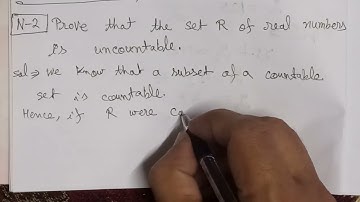 N-2 Prove that the set R of real numbers
is uncountable.
Sol⇒ we know that a subset of a countable
set is countable.
Hence, if R were co